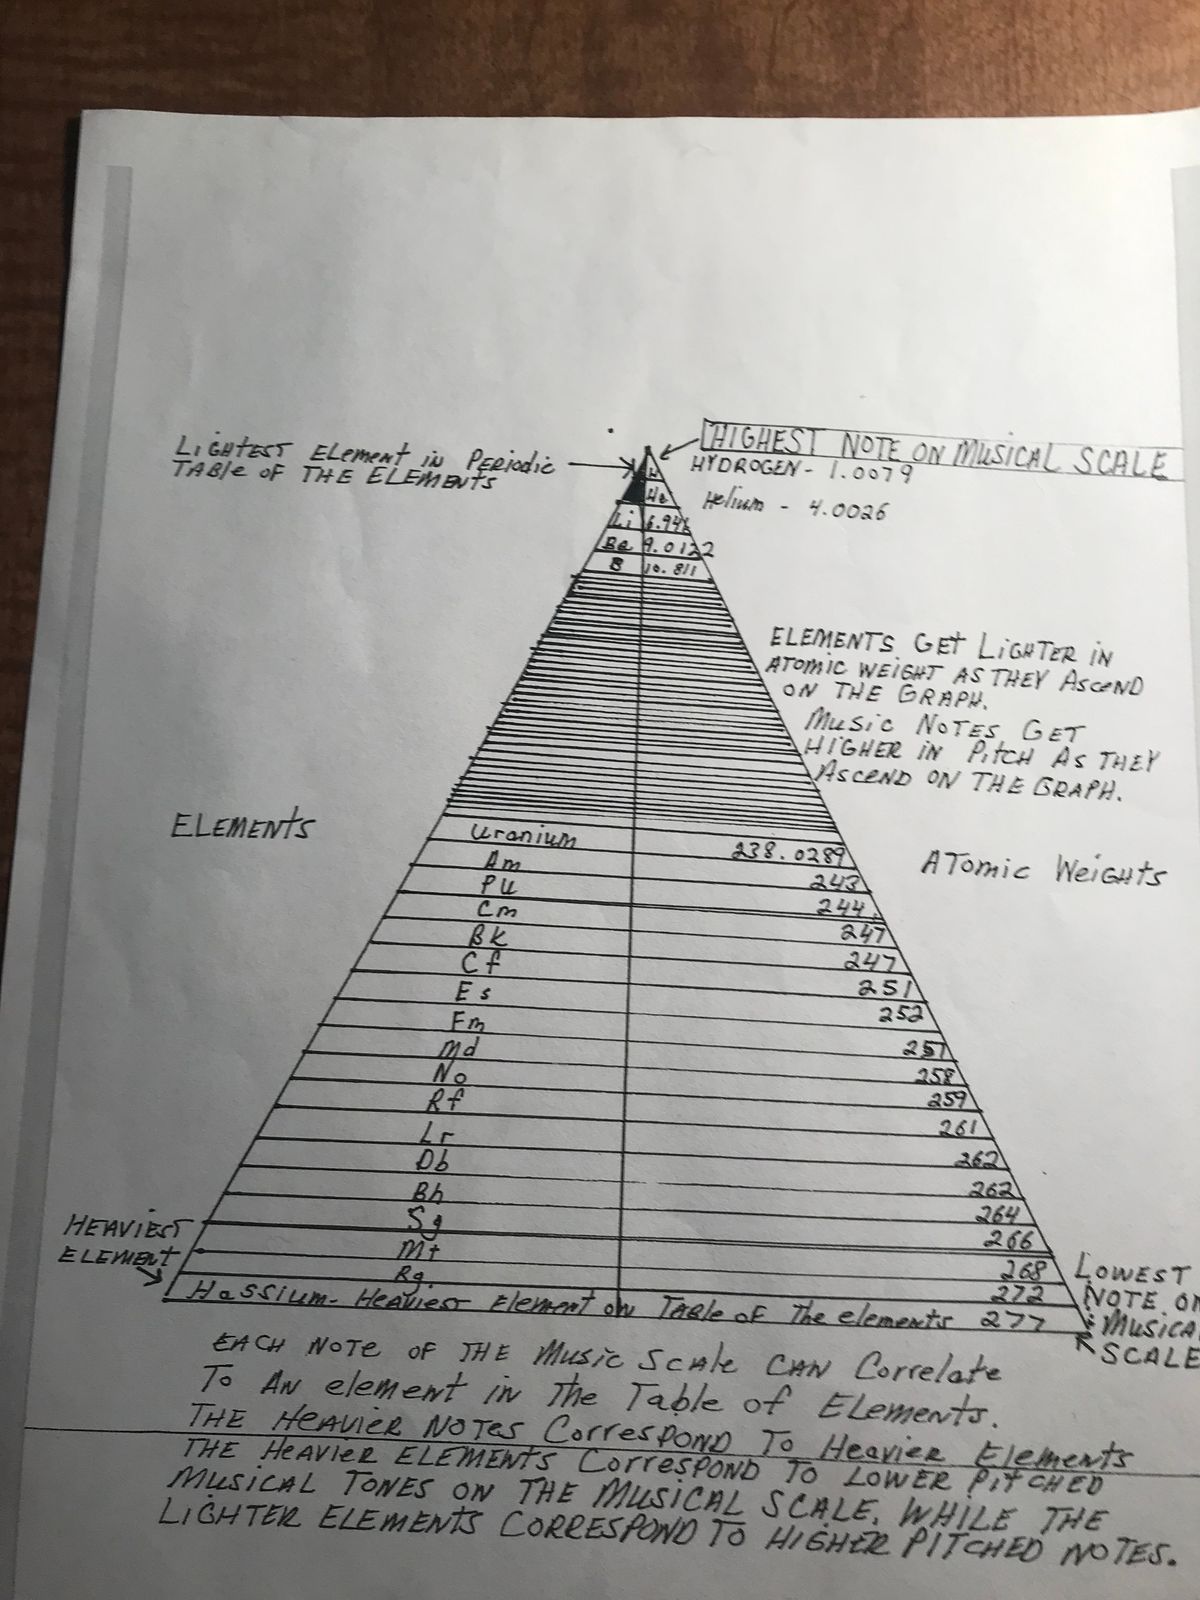 LIGHTEST ELEMENT IN PERIODIC
TABLE OF THE ELEMENTS
HIGHEST NOTE ON MUSICAL SCALE
HYDROGEN - 1.0079
Helium - 4.0026
H
He
Li 6.941
Be 9.0122
B 10.811
ELEMENTS GET LIGHTER IN
ATOMIC WEIGHT AS THEY ASCEND
ON THE GRAPH.
MUSIC NOTES GET
HIGHER IN PITCH AS THEY
ASCEND ON THE GRAPH.
ELEMENTS
ATOMIC WEIGHTS
Uranium 238.0289
Am 243
Pu 244
Cm 247
Bk 247
Cf 251
Es 252
Fm 257
Md 258
No 259
Rf 261
Lr 262
Db 262
Bh 264
Sg 266
Mt 268
Rg. 272
Hassium- Heaviest Element on Table of The elements 277
HEAVIEST
ELEMENT
LOWEST
NOTE ON
MUSICA
SCALE
EACH NOTE OF THE MUSIC SCALE CAN Correlate
To AN element in The Table of ELements.
THE HEAVIER NOTES CORRESPOND TO Heavier Elements
THE HEAVIER ELEMENTS CORRESPOND TO LOWER PITCHED
MUSICAL TONES ON THE MUSICAL SCALE, WHILE THE
LIGHTER ELEMENTS CORRESPOND TO HIGHER PITCHED NOTES.